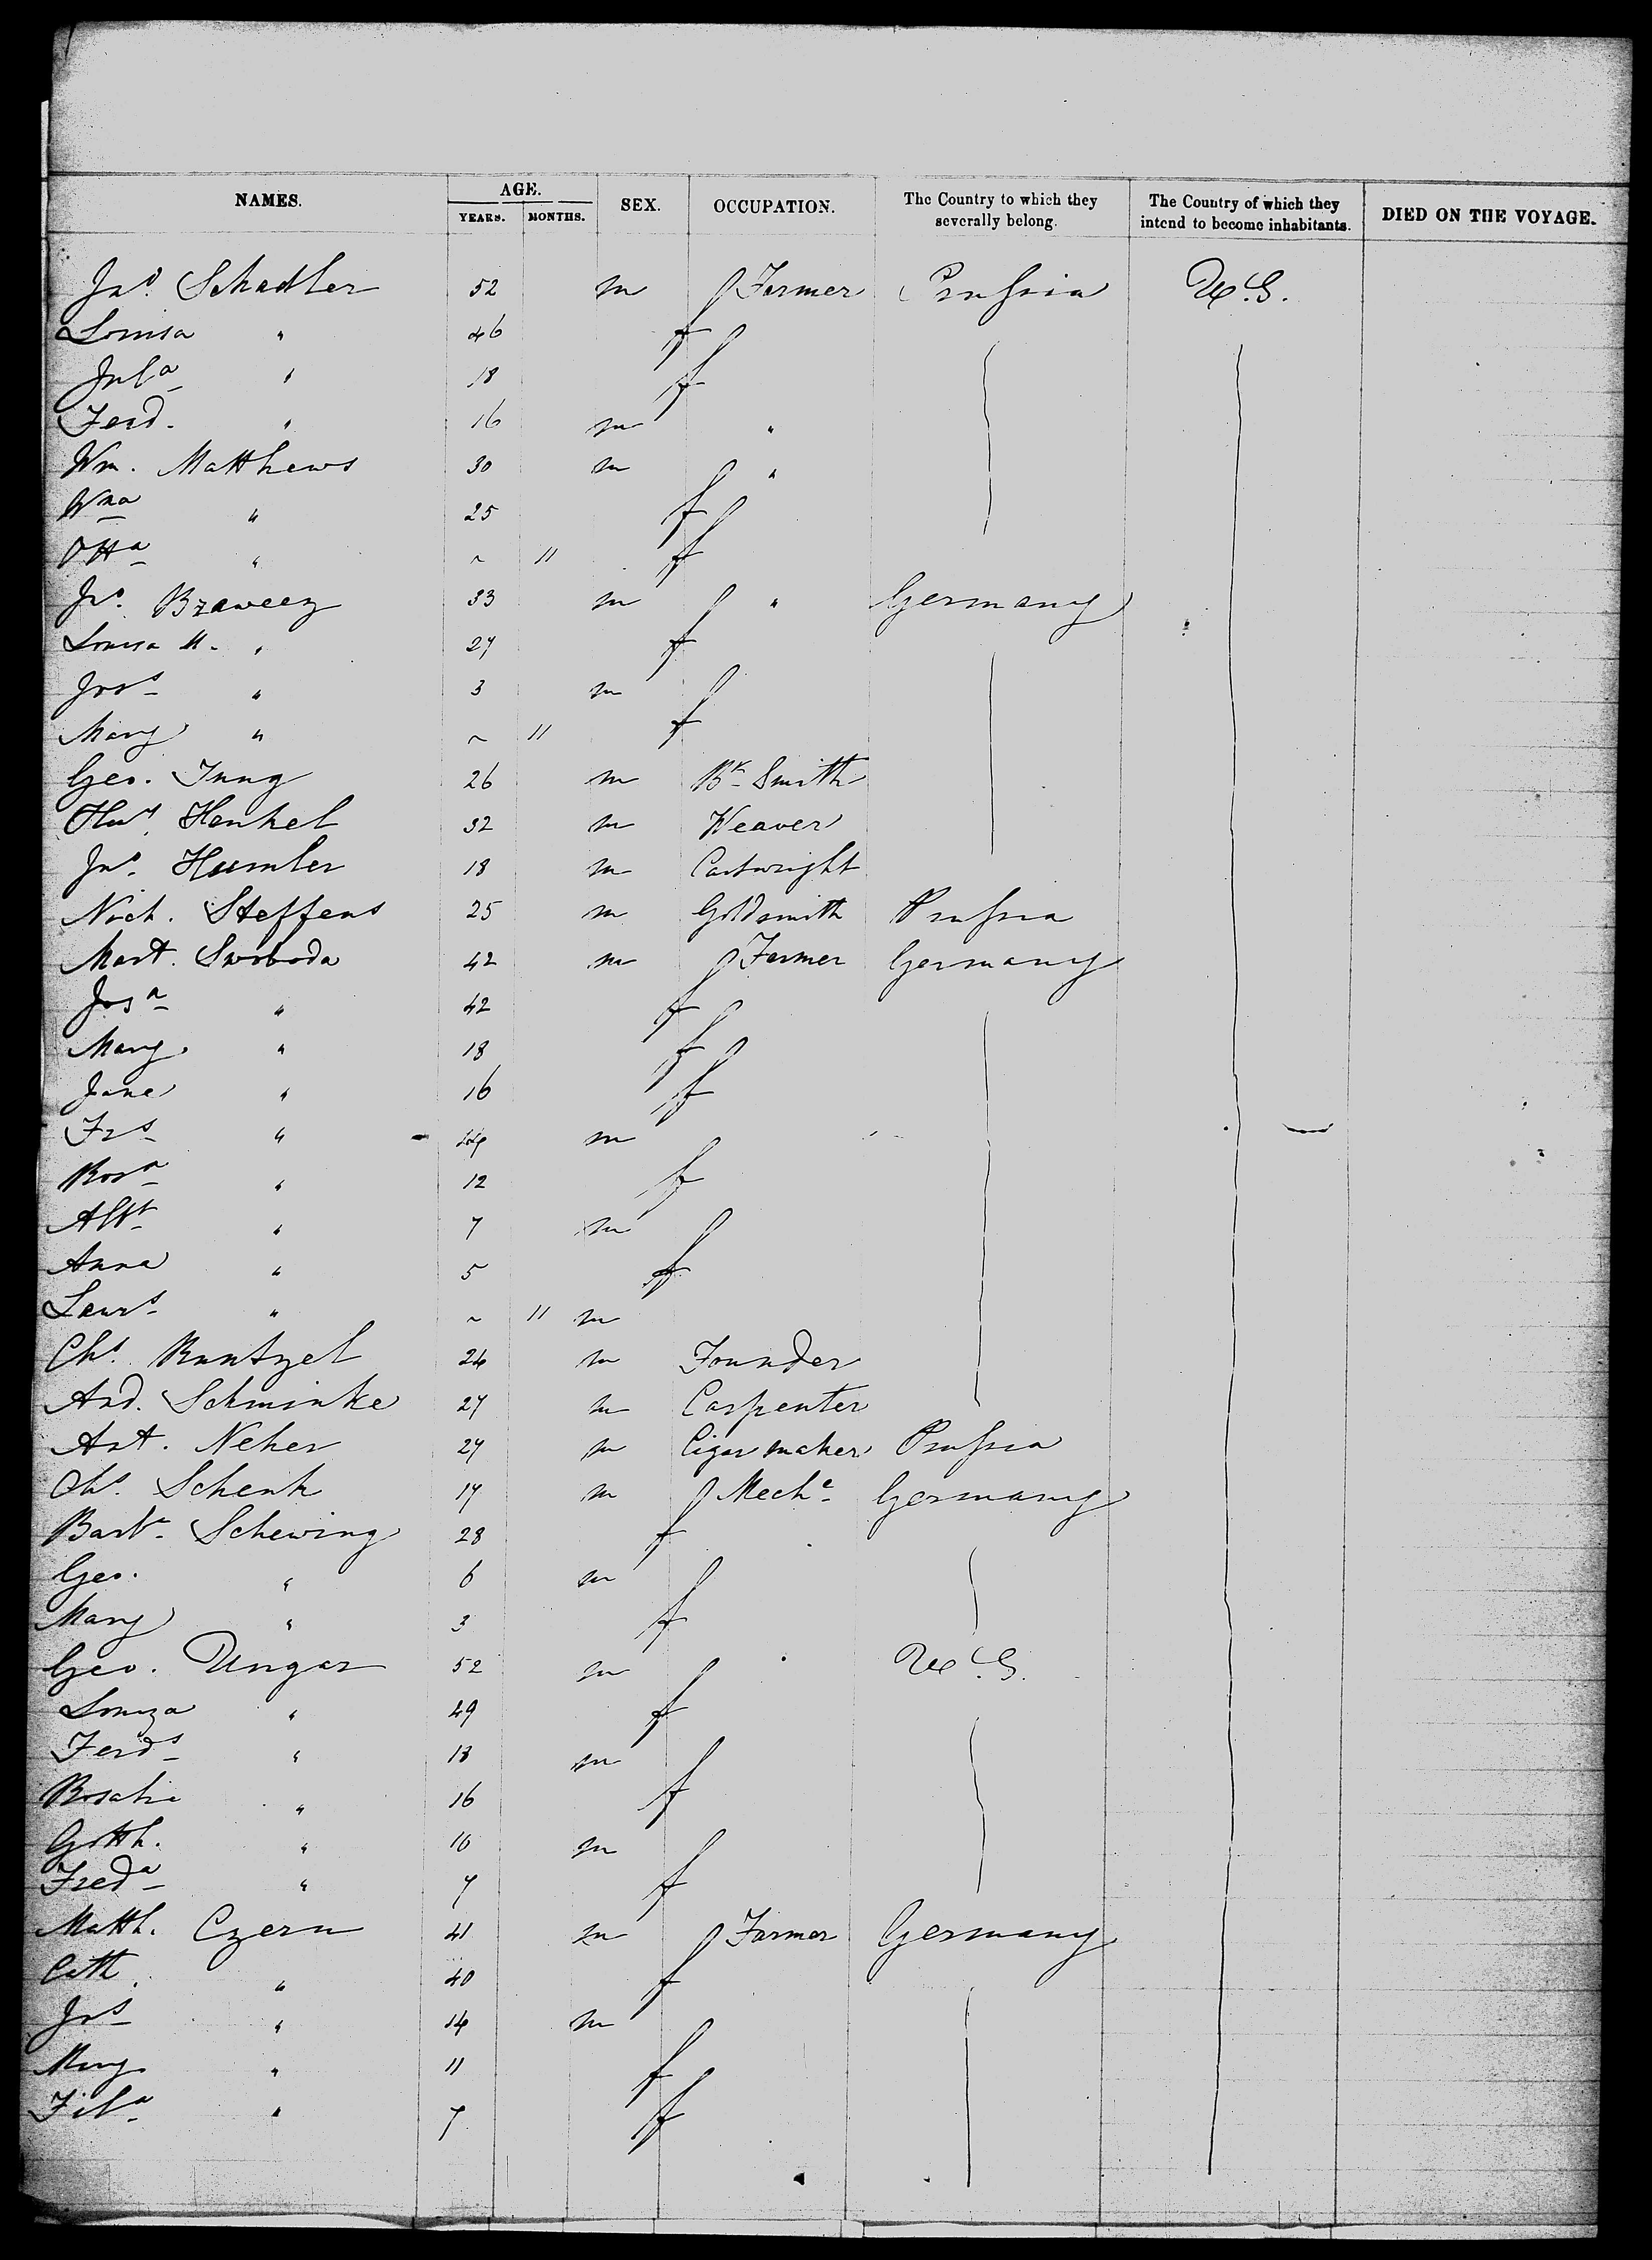 NAMES. AGE. SEX. OCCUPATION. The Country to which they severally belong. The Country of which they intend to become inhabitants. DIED ON THE VOYAGE.
YEARS. MONTHS.
Jno. Schadler 52 m Farmer Prussia U.S.
Louisa " 46 f
Jula " 18 f
Ferd. " 16 m "
Wm. Matthews 30 m "
Wma " 25 f
Otta " ~ 11 f
Jno. Braweez 33 m " Germany
Louisa M. " 27 f
Joss " 3 m
Mary " ~ 11 f
Geo. Jung 26 m Bk Smith
Henkel 32 m Weaver
Jno. Humler 18 m Cartwright
Nich. Steffens 25 m Goldsmith Prussia
Mart. Swoboda 42 m Farmer Germany
Josa " 42 f
Mary " 18 f
Jane " 16 f
Frs " 14 m
Rosa " 12 f
Albt " 7 m
Anna " 5 f
Laurs " ~ 11 m
Chs. Runtzel 24 m Founder
And. Schminke 27 m Carpenter
Ant. Neher 27 m Cigar maker Prussia
Chs. Schenk 17 m Mechc Germany
Barba Schewing 28 f
Geo. " 6 m
Mary " 3 f
Geo. Ungar 52 m U.S.
Louiza " 49 f
Ferds " 18 m
Rosalie " 16 f
Gotth. " 10 m
Freda " 7 f
Matth. Czern 41 m Farmer Germany
Cath. " 40 f
Jos " 14 m
Mary " 11 f
Fila " 7 f